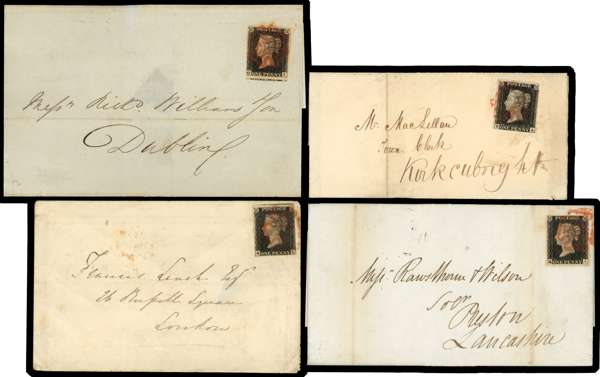 POSTAGE
ONE PENNY
Messrs Richd. Williams Son
Dublin.
POSTAGE
ONE PENNY
Mr. MacLellan
Town Clerk
Kirkcudbright
POSTAGE
ONE PENNY
Francis Esqr
Square
London
POSTAGE
ONE PENNY
Messrs Rawsthorne & Wilson
Solrs
Preston
Lancashire